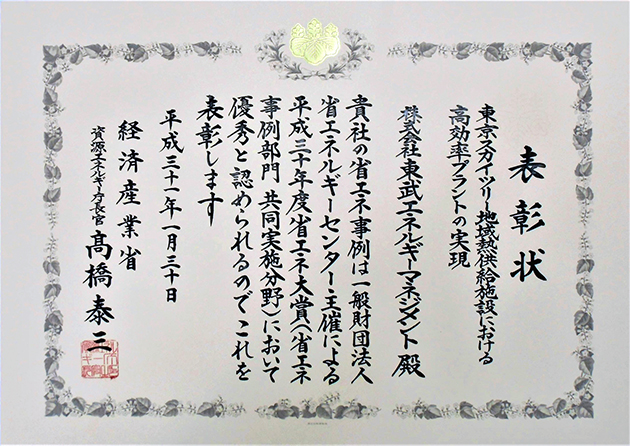 表彰状
東京スカイツリー地域熱供給施設における
高効率プラントの実現
株式会社東武エネルギーマネジメント殿
貴社の省エネ事例は一般財団法人
省エネルギーセンター主催による
平成三十年度省エネ大賞(省エネ
事例部門 共同実施分野)において
優秀と認められるのでこれを
表彰します
平成三十一年一月三十日
経済産業省
資源エネルギー庁長官 髙橋泰三